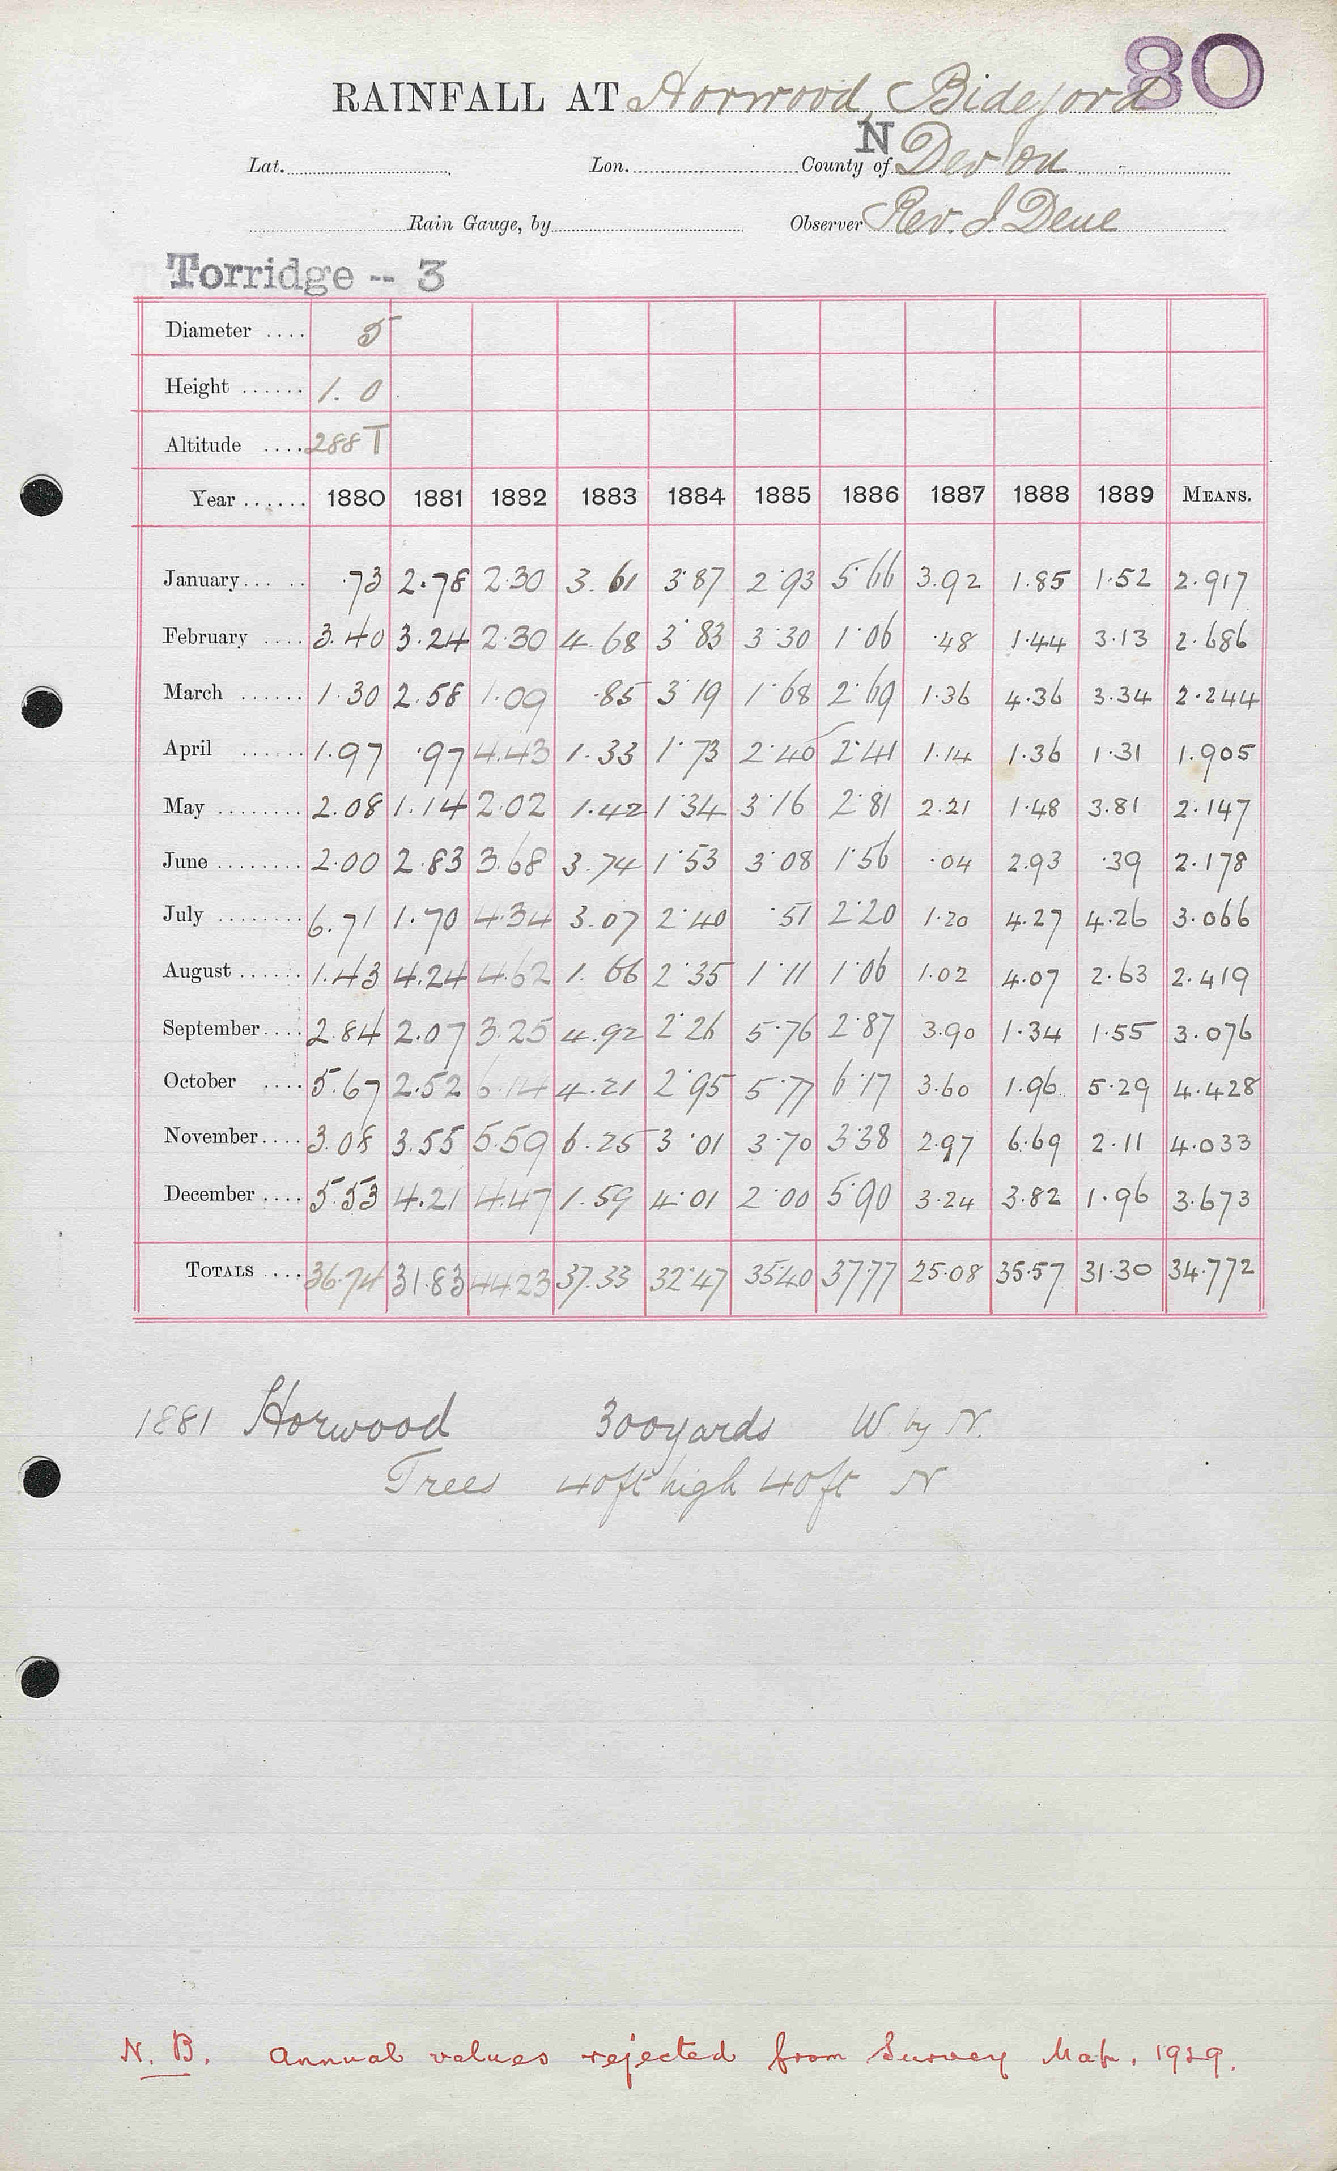 80
RAINFALL AT Horwood, Bideford
Lat. Lon. County of N Devon
Rain Gauge, by Observer Rev. J. Dene
Torridge -- 3
Diameter .... 5
Height ...... 1. 0
Altitude .... 288 T
Year ...... 1880 1881 1882 1883 1884 1885 1886 1887 1888 1889 MEANS.
January ... .73 2.78 2.30 3.61 3.87 2.93 5.66 3.92 1.85 1.52 2.917
February .... 3.40 3.24 2.30 4.68 3.83 3.30 1.06 .48 1.44 3.13 2.686
March ...... 1.30 2.58 1.09 .85 3.19 1.68 2.69 1.36 4.36 3.34 2.244
April ...... 1.97 .97 4.43 1.33 1.73 2.40 2.41 1.14 1.36 1.31 1.905
May ........ 2.08 1.14 2.02 1.42 1.34 3.16 2.81 2.21 1.48 3.81 2.147
June ........ 2.00 2.83 3.68 3.74 1.53 3.08 1.56 .04 2.93 .39 2.178
July ........ 6.71 1.70 4.34 3.07 2.40 .51 2.20 1.20 4.27 4.26 3.066
August ...... 1.43 4.24 4.62 1.66 2.35 1.11 1.06 1.02 4.07 2.63 2.419
September .... 2.84 2.07 3.25 4.92 2.26 5.76 2.87 3.90 1.34 1.55 3.076
October .... 5.67 2.52 6.14 4.21 2.95 5.77 6.17 3.60 1.96 5.29 4.428
November .... 3.08 3.55 5.59 6.25 3.01 3.70 3.38 2.97 6.69 2.11 4.033
December .... 5.53 4.21 4.47 1.59 4.01 2.00 5.90 3.24 3.82 1.96 3.673
TOTALS ... 36.74 31.83 44.23 37.33 32.47 35.40 37.77 25.08 35.57 31.30 34.772
1881 Horwood 300yards W by N.
Trees 40ft high 40ft N
N. B. Annual values rejected from Survey Map, 1929.